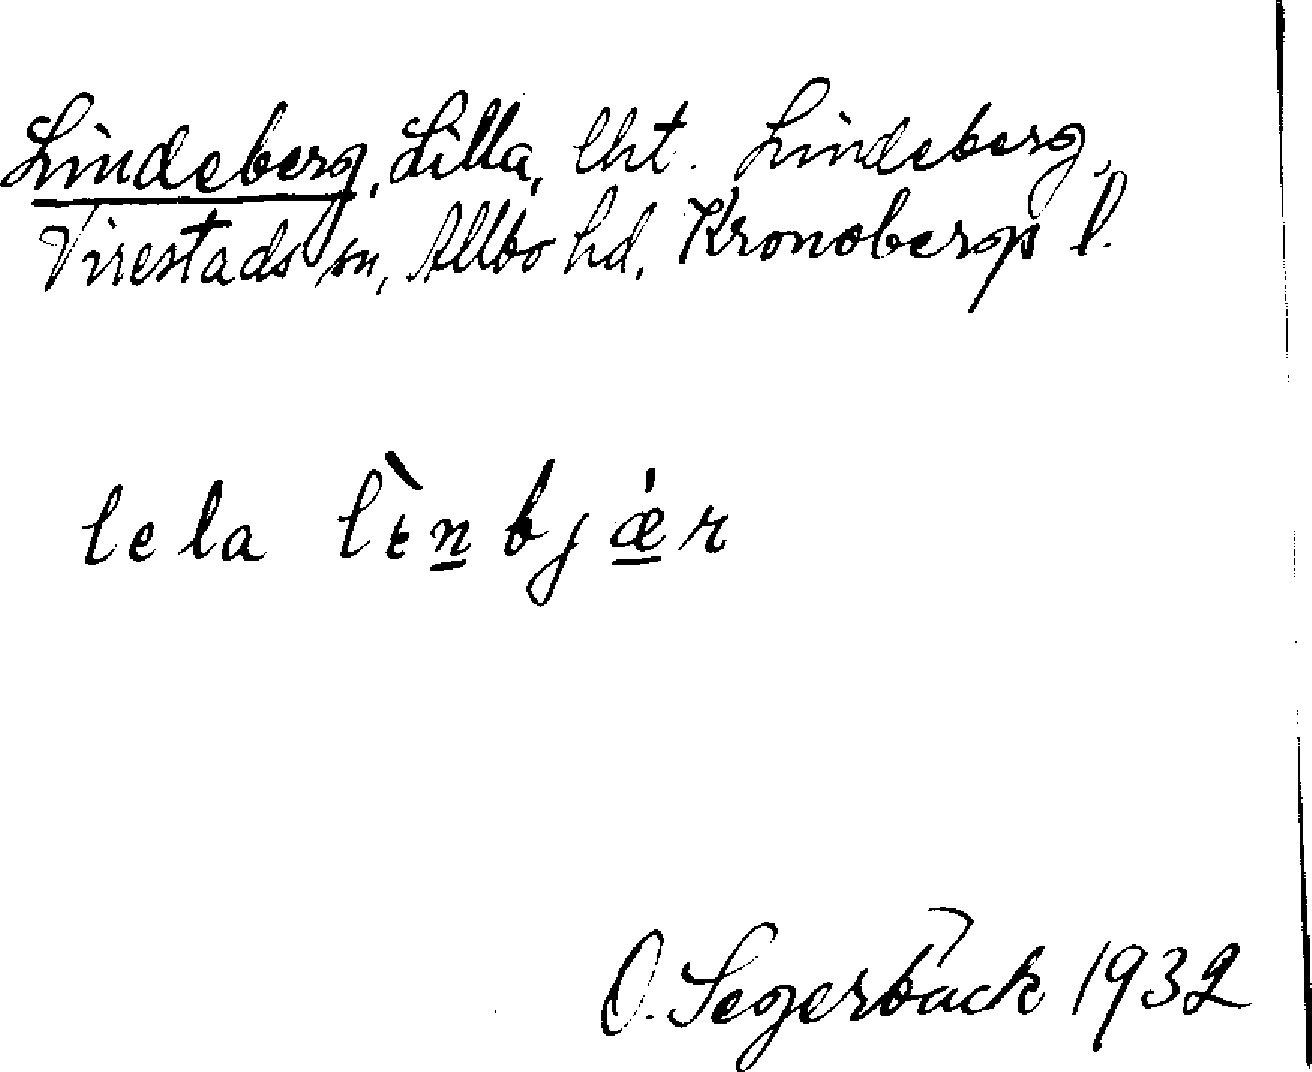 Lindeberg, Lilla, lht. Lindeberg,
Virestads sn, Allbo hd, Kronobergs l.
lela lɩ̀n̲bjæ̲̍r
O. Segerbäck 1932